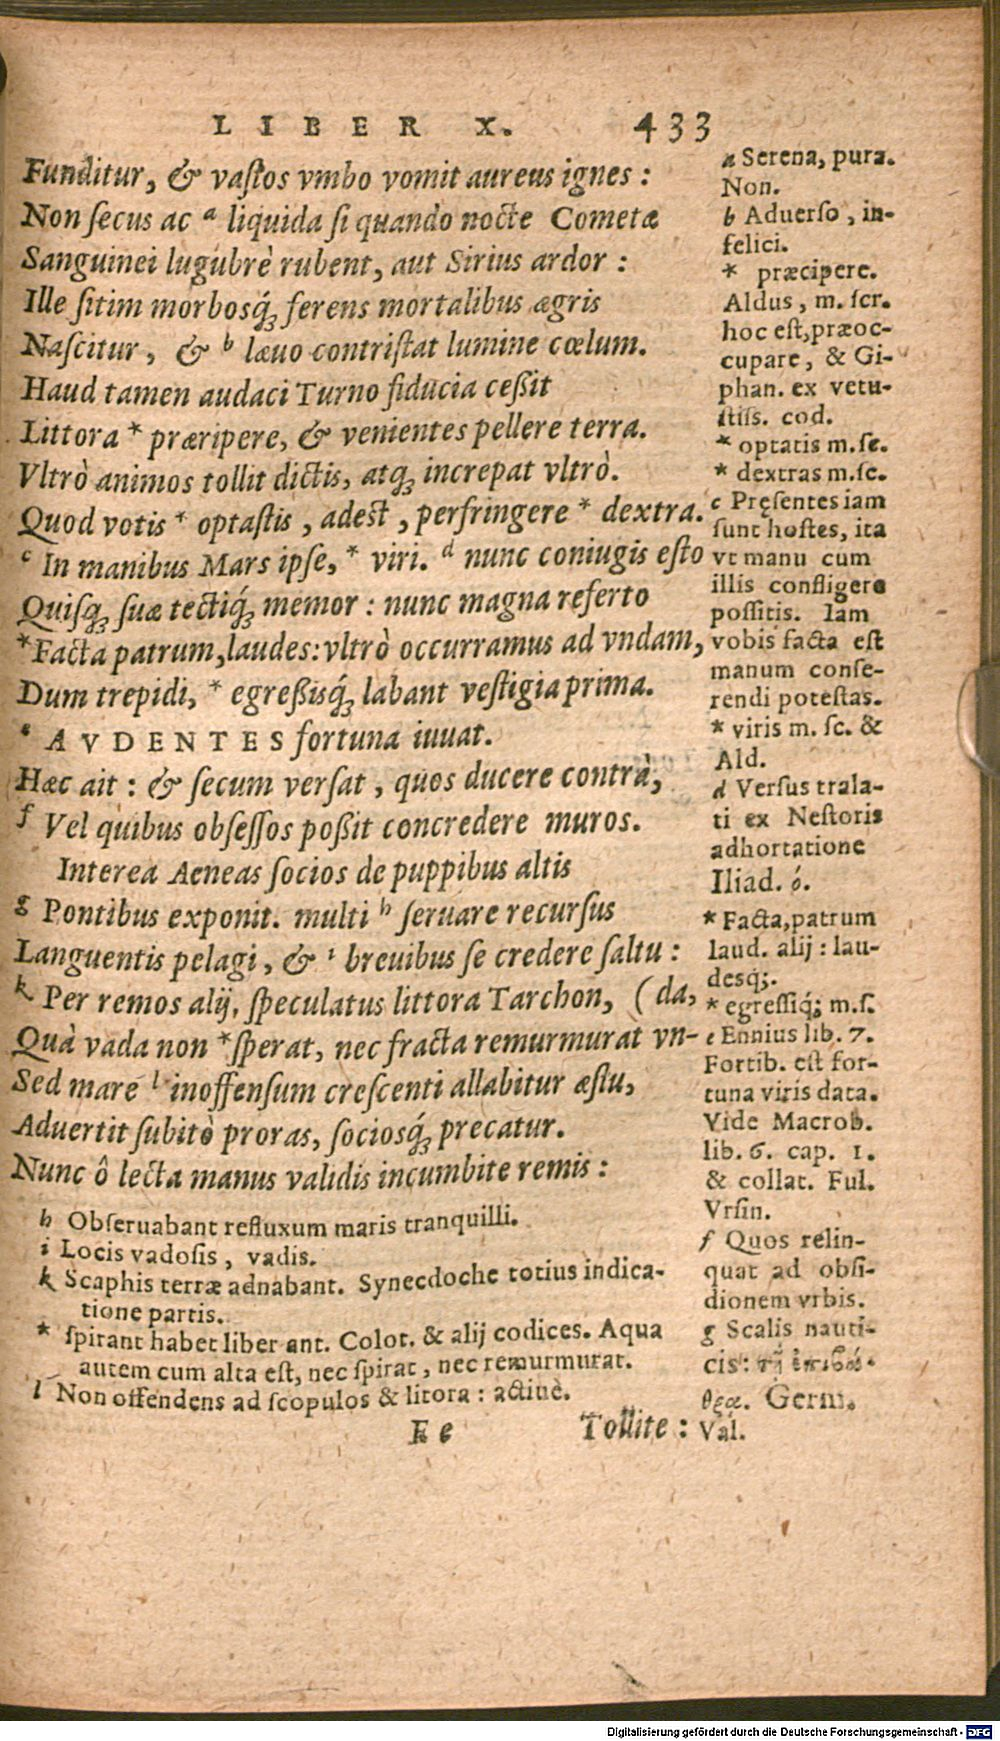 LIBER X. 433
Funditur, & vaſtos vmbo vomit aureus ignes :
Non ſecus ac a liquida ſi quando nocte Cometæ
Sanguinei lugubrè rubent, aut Sirius ardor :
Ille ſitim morbosq́; ferens mortalibus ægris
Naſcitur, & b læuo contriſtat lumine cœlum.
Haud tamen audaci Turno fiducia ceßit
Littora * præripere, & venientes pellere terra.
Vltrò animos tollit dictis, atq; increpat vltrò.
Quod votis * optaſtis, adeſt, perfringere * dextra.
c In manibus Mars ipſe, * viri. d nunc coniugis eſto
Quiſq; ſuæ tectiq́; memor : nunc magna referto
*Facta patrum, laudes: vltrò occurramus ad vndam,
Dum trepidi, * egreßisq́; labant veſtigia prima.
e AVDENTES fortuna iuuat.
Hæc ait : & ſecum verſat, quos ducere contrà,
f Vel quibus obſeſſos poßit concredere muros.
Interea Aeneas ſocios de puppibus altis
g Pontibus exponit. multi h ſeruare recurſus
Languentis pelagi, & i breuibus ſe credere ſaltu :
k Per remos alij, ſpeculatus littora Tarchon, (da,
Quà vada non *ſperat, nec fracta remurmurat vn-
Sed mare l inoffenſum creſcenti allabitur æſtu,
Aduertit ſubitò proras, ſociosq́; precatur.
Nunc ô lecta manus validis incumbite remis :
h Obſeruabant refluxum maris tranquilli.
i Locis vadoſis, vadis.
k Scaphis terræ adnabant. Synecdoche totius indica-
tione partis.
* ſpirant habet liber ant. Colot. & alij codices. Aqua
autem cum alta eſt, nec ſpirat, nec remurmurat.
l Non offendens ad ſcopulos & litora : actiuè.
Ee Tollite :
a Serena, pura.
Non.
b Aduerſo, in-
felici.
* præcipere.
Aldus, m. ſcr.
hoc eſt, præoc-
cupare, & Gi-
phan. ex vetu-
ſtiſſ. cod.
* optatis m. ſc.
* dextras m. ſc.
c Pręſentes iam
ſunt hoſtes, ita
vt manu cum
illis confligere
poſſitis. Iam
vobis facta eſt
manum conſe-
rendi poteſtas.
* viris m. ſc. &
Ald.
d Verſus trala-
ti ex Neſtoris
adhortatione
Iliad. ó.
* Facta, patrum
laud. alij : lau-
desq́;.
* egreſſiq́; m. ſ.
e Ennius lib. 7.
Fortib. eſt for-
tuna viris data.
Vide Macrob.
lib. 6. cap. 1.
& collat. Ful.
Vrſin.
f Quos relin-
quat ad obſi-
dionem vrbis.
g Scalis nauti-
cis: τῇ ἐπιβά-
θρᾳ. Germ.
Val.
Digitalisierung gefördert durch die Deutsche Forschungsgemeinschaft - DFG